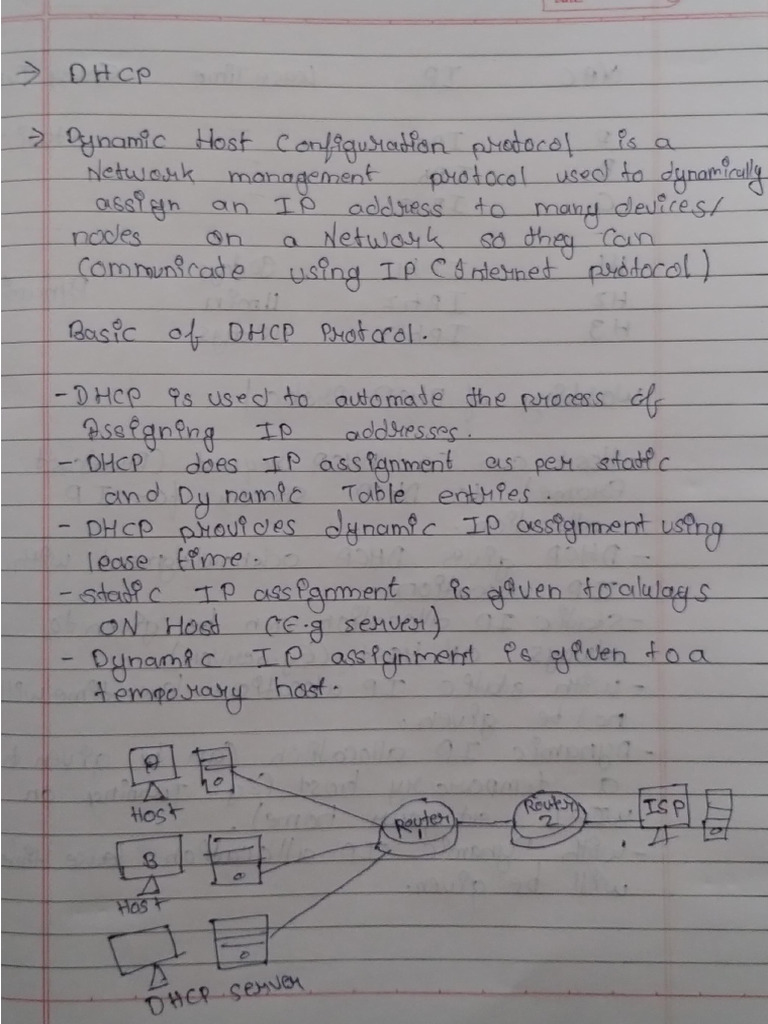 → DHCP
→ Dynamic Host Configuration protocol is a
Network management protocol used to dynamically
assign an IP address to many devices/
nodes on a Network so they can
Communicade using IP (Internet protocol)
Basic of DHCP Protocol.
- DHCP is used to automate the process of
Assigning IP addresses.
- DHCP does IP assignment as per static
and Dynamic Table entries.
- DHCP provides dynamic IP assignment using
lease time.
- static IP assignment is given to always
ON Host (E.g server)
- Dynamic IP assignment is given to a
temporary host.
A
Host
Router
1
Router
2
ISP
B
Host
DHCP server